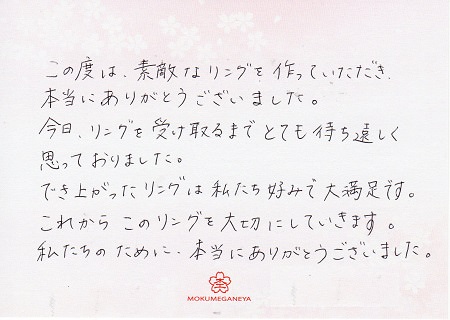 この度は、素敵なリングを作っていただき、
本当にありがとうございました。
今日、リングを受け取るまでとても待ち遠しく
思っておりました。
でき上がったリングは私たち好みで大満足です。
これからこのリングを大切にしていきます。
私たちのために、本当にありがとうございました。
MOKUMEGANEYA